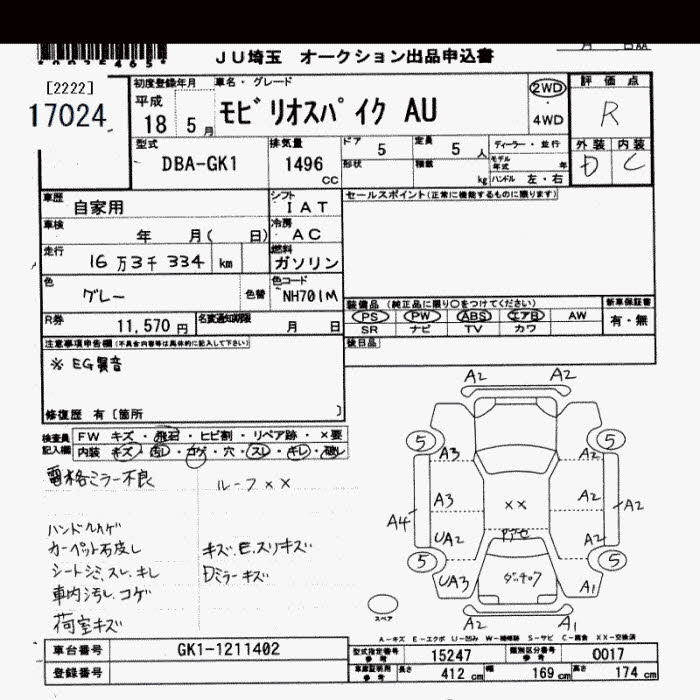 *0025465*
JU埼玉 オークション出品申込書
月 日AA
[2222]
17024
初度登録年月
平成
18 5月
車名・グレード
モビリオスパイク AU
2WD
4WD
評価点
R
型式
DBA-GK1
排気量
1496
CC
ドア
5
定員
5 人
形状
積載
kg
ディーラー・並行
モデル年式 年
ハンドル 左・右
外装 内装
D C
車歴
自家用
シフト
IAT
セールスポイント(正常に機能するものに限ります)
車検
年 月( 日)
冷房
AC
走行
16万3千334 km
燃料
ガソリン
色
グレー
色替
色コード
NH701M
装備品 (純正品に限り○をつけてください)
新車保証書
PS PW ABS エアB AW
有・無
SR ナビ TV カワ
R券
11,570円
名変通知期限
月 日
後日品
注意事項申告欄(不具合内容等は具体的に記入して下さい)
※ EG異音
修復歴 有〔箇所 〕
検査員
記入欄
FW キズ・飛石・ヒビ割・リペア跡・×要
内装 キズ・汚レ・コゲ・穴・スレ・キレ・破レ
電格ミラー不良
ルーフ××
ハンドルハゲ
カーペット石皮し
キズ、E、スリキズ
シートシミ、スレ、キレ
Dミラーキズ
車内汚し、コゲ
荷室キズ
A2 A2
5 5
A3 A2
A3 A2
A4 A2
××
UA2 A2
5 5
UA3 A1
A2 A1
スペア
A-キズ E-エクボ U-凹み W-補修跡 S-サビ C-腐食 XX-交換済
車台番号
GK1-1211402
型式指定番号
参考
15247
類別区分番号
参考
0017
登録番号
車庫証明用
参考
長さ
412 cm
幅
169 cm
高さ
174 cm